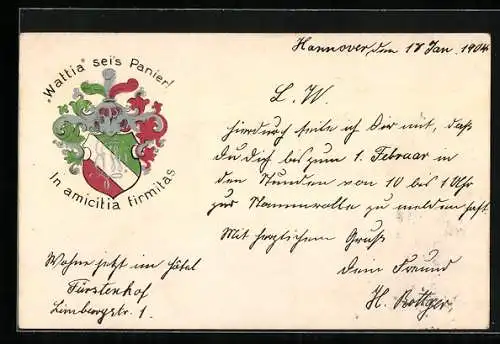 "Wattia" sei's Panier!
In amicitia firmitas
Hannover, den 18 Jan. 1904
L. W.
Hierdurch teile ich Dir mit, daß
Du Dich bis zum 1. Februar in
den Stunden von 10 bis 1 Uhr
zur Stammrolle zu melden hast.
Mit herzlichem Gruß
Dein Freund
H. Böttger.
Wohne jetzt im Hôtel
Fürstenhof
Limburgstr. 1.